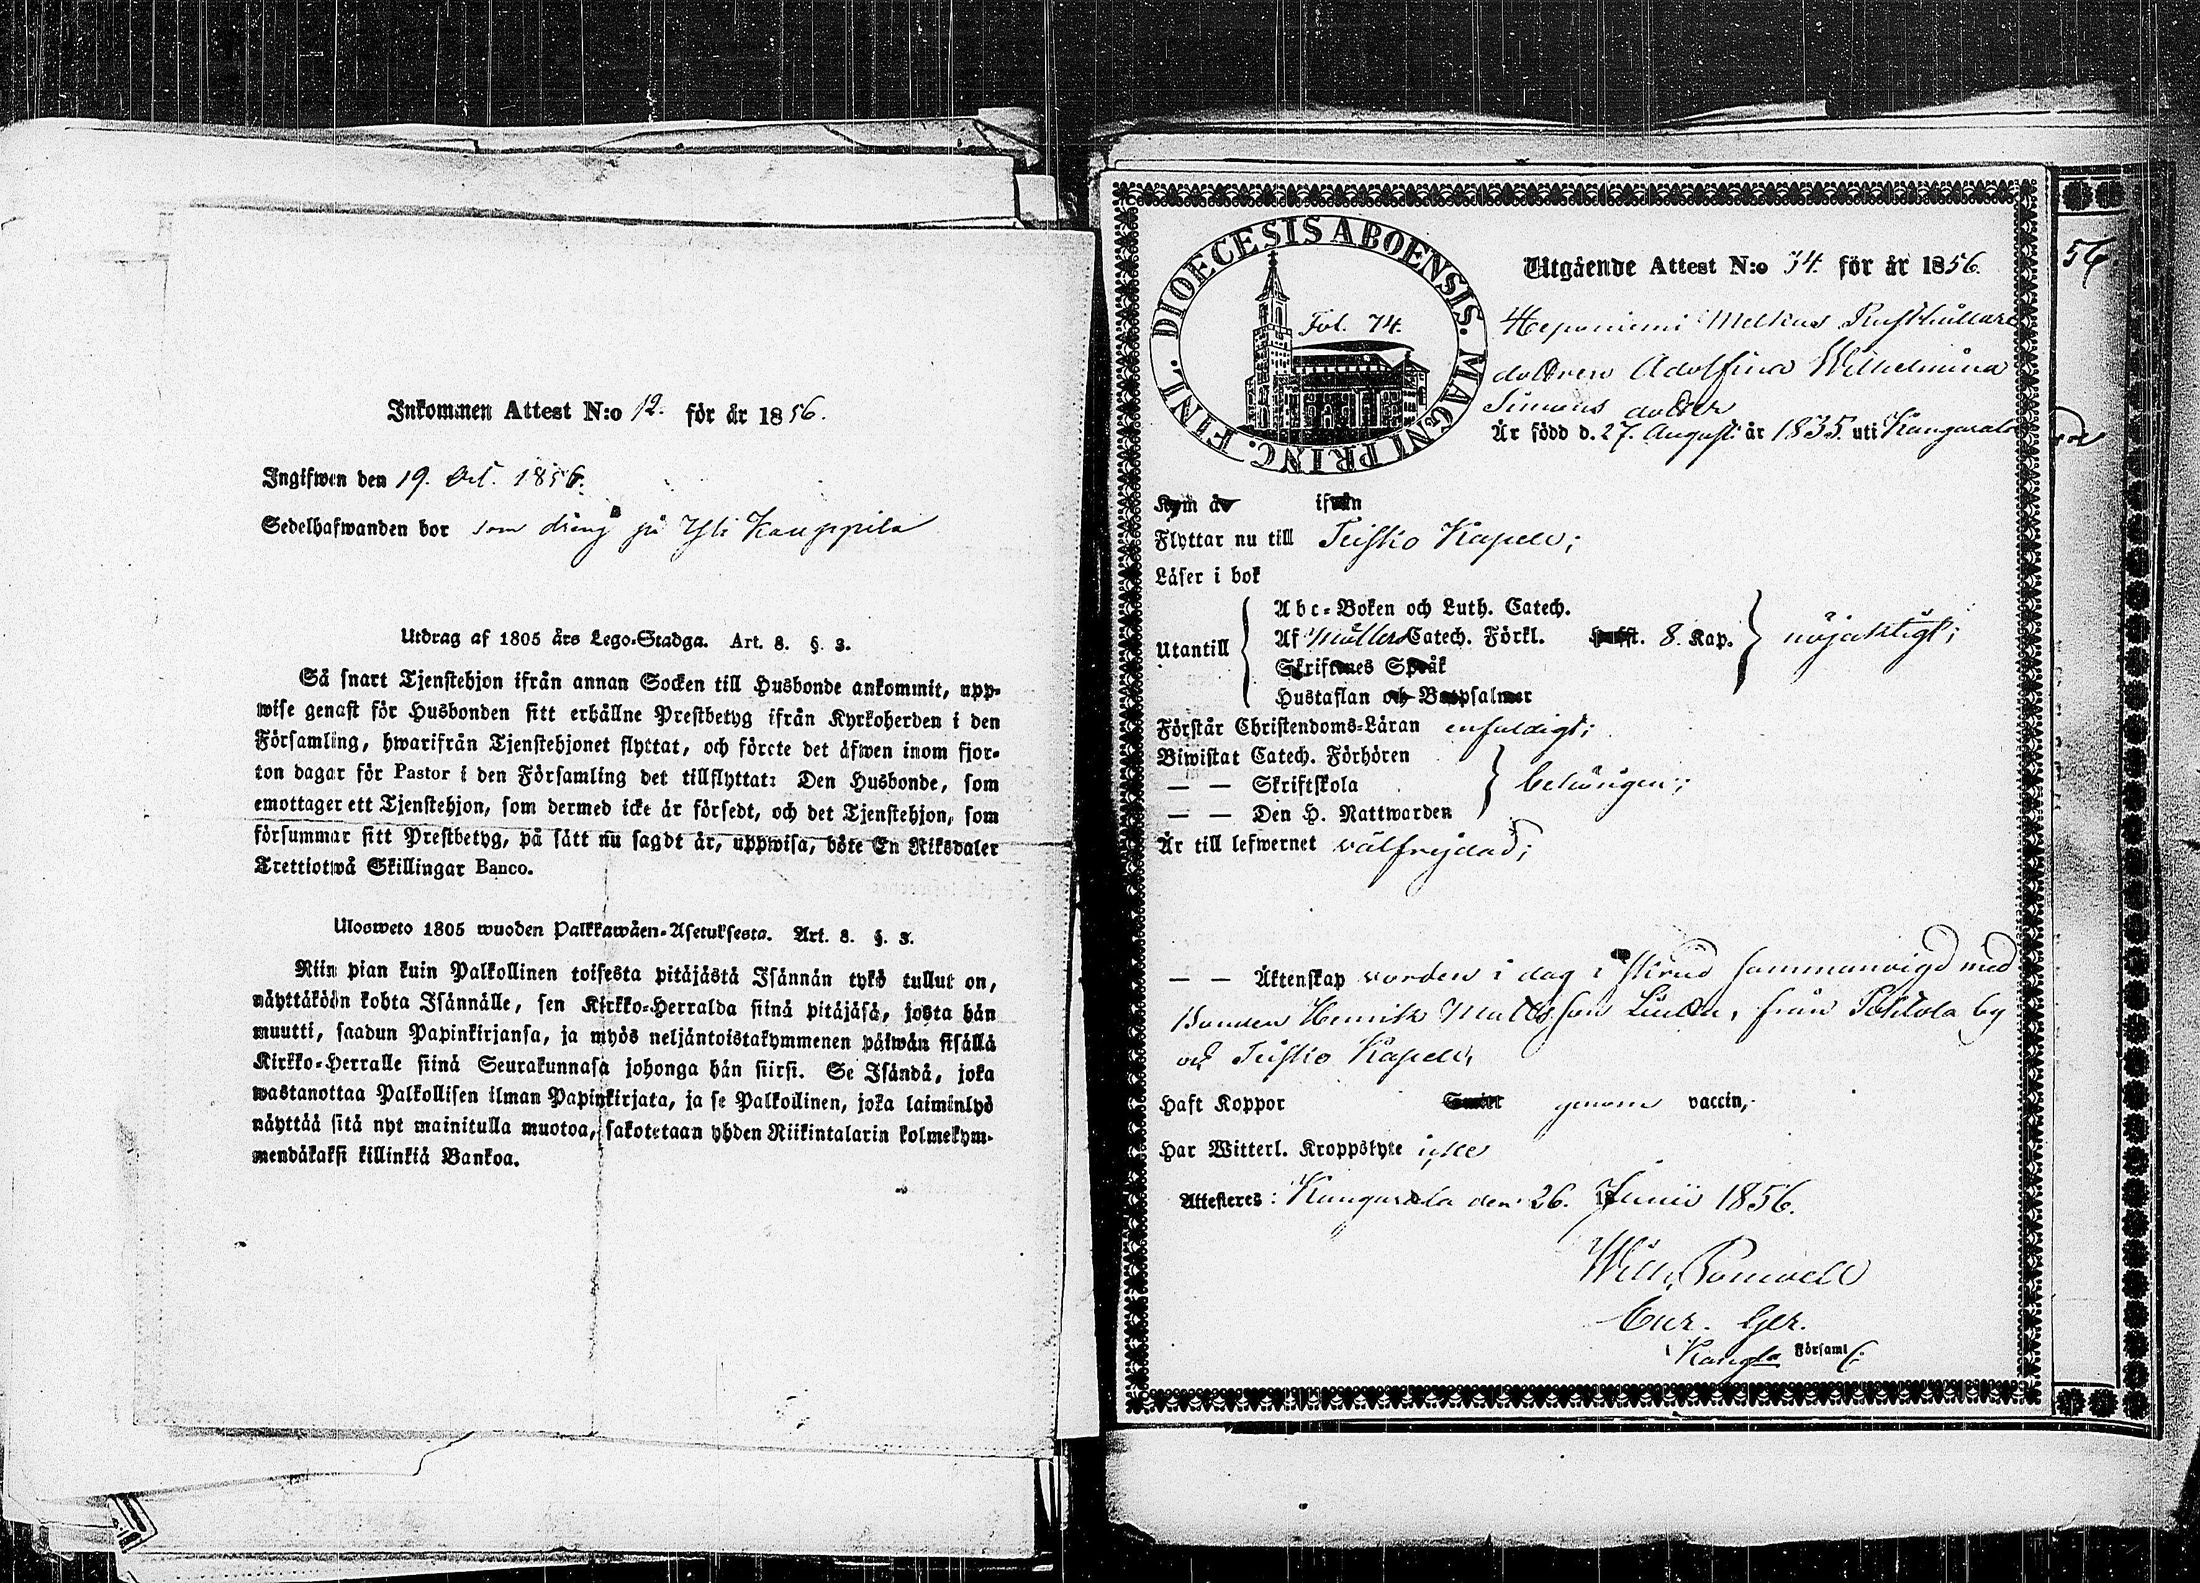 Inkommen Attest N:o 12. för år 1856.
Ingifwen den 19. Oct. 1856.
Sedelhafwanden bor som dräng på Yli Kauppila
Utdrag af 1805 års Lego-Stadga. Art. 8. §. 3.
Så snart Tjenstehjon ifrån annan Socken till Husbonde ankommit, upp-
wise genast för Husbonden sitt erhållne Prestbetyg ifrån Kyrkoherden i den
Församling, hwarifrån Tjenstehjonet flyttat, och förete det äfwen inom fjor-
ton dagar för Pastor i den Församling det tillflyttat: Den Husbonde, som
emottager ett Tjenstehjon, som dermed icke är försedt, och det Tjenstehjon, som
försummar sitt Prestbetyg, på sätt nu sagdt är, uppwisa, böte En Riksdaler
Trettiotwå Skillingar Banco.
Ulosweto 1805 wuoden Palkkawäen-Asetuksesta. Art. 8. §. 3.
Niin pian kuin Palkollinen toisesta pitäjästä Isännän tykö tullut on,
näyttäköön kohta Isännälle, sen Kirkko-Herralda siinä pitäjäsä, josta hän
muutti, saadun Papinkirjansa, ja myös neljäntoistakymmenen päiwän sisällä
Kirkko-Herralle siinä Seurakunnasa johonga hän siirsi. Se Isändä, joka
wastanottaa Palkollisen ilman Papinkirjata, ja se Palkollinen, joka laiminlyö
näyttää sitä nyt mainitulla muotoa, sakotetaan yhden Riikintalarin kolmekym-
mendäkaksi killinkiä Bankoa.
DIOECESIS ABOENSIS. MAGNI PRINC. FINL.
Fol. 74.
Utgående Attest N:o 34. för år 1856.
56.
Heponiemi Melkus Rusthållare
dottren Adolfina Wilhelmina
Simons dotter
Är född d. 27. August. år 1835. uti Kangasala
Kom år ifrån
Flyttar nu till Teisko Kapell;
Läser i bok
Abc-Boken och Luth. Catech.
Utantill Af Möllers Catech. Förkl. 8. Kap. nöjaktigt;
Skriftenes Språk
Hustaflan och Botpsalmer
Förstår Christendoms-Läran enfaldigt;
Biwistat Catech. Förhören
— — Skriftskola behörigen;
— — Den H. Nattwarden
Är till lefwernet välfrejdad;
— — Äktenskap vorden i dag sammanvigd med
Bonden Henrik Mattsson från by
och Teisko Kapell,
Haft Koppor genom vaccin,
Har Witterl. Kroppslyte icke
Attesteres: Kangasala den 26. Junii 1856.
Wilh.
Cur. Ger.
i Kangla Församl.